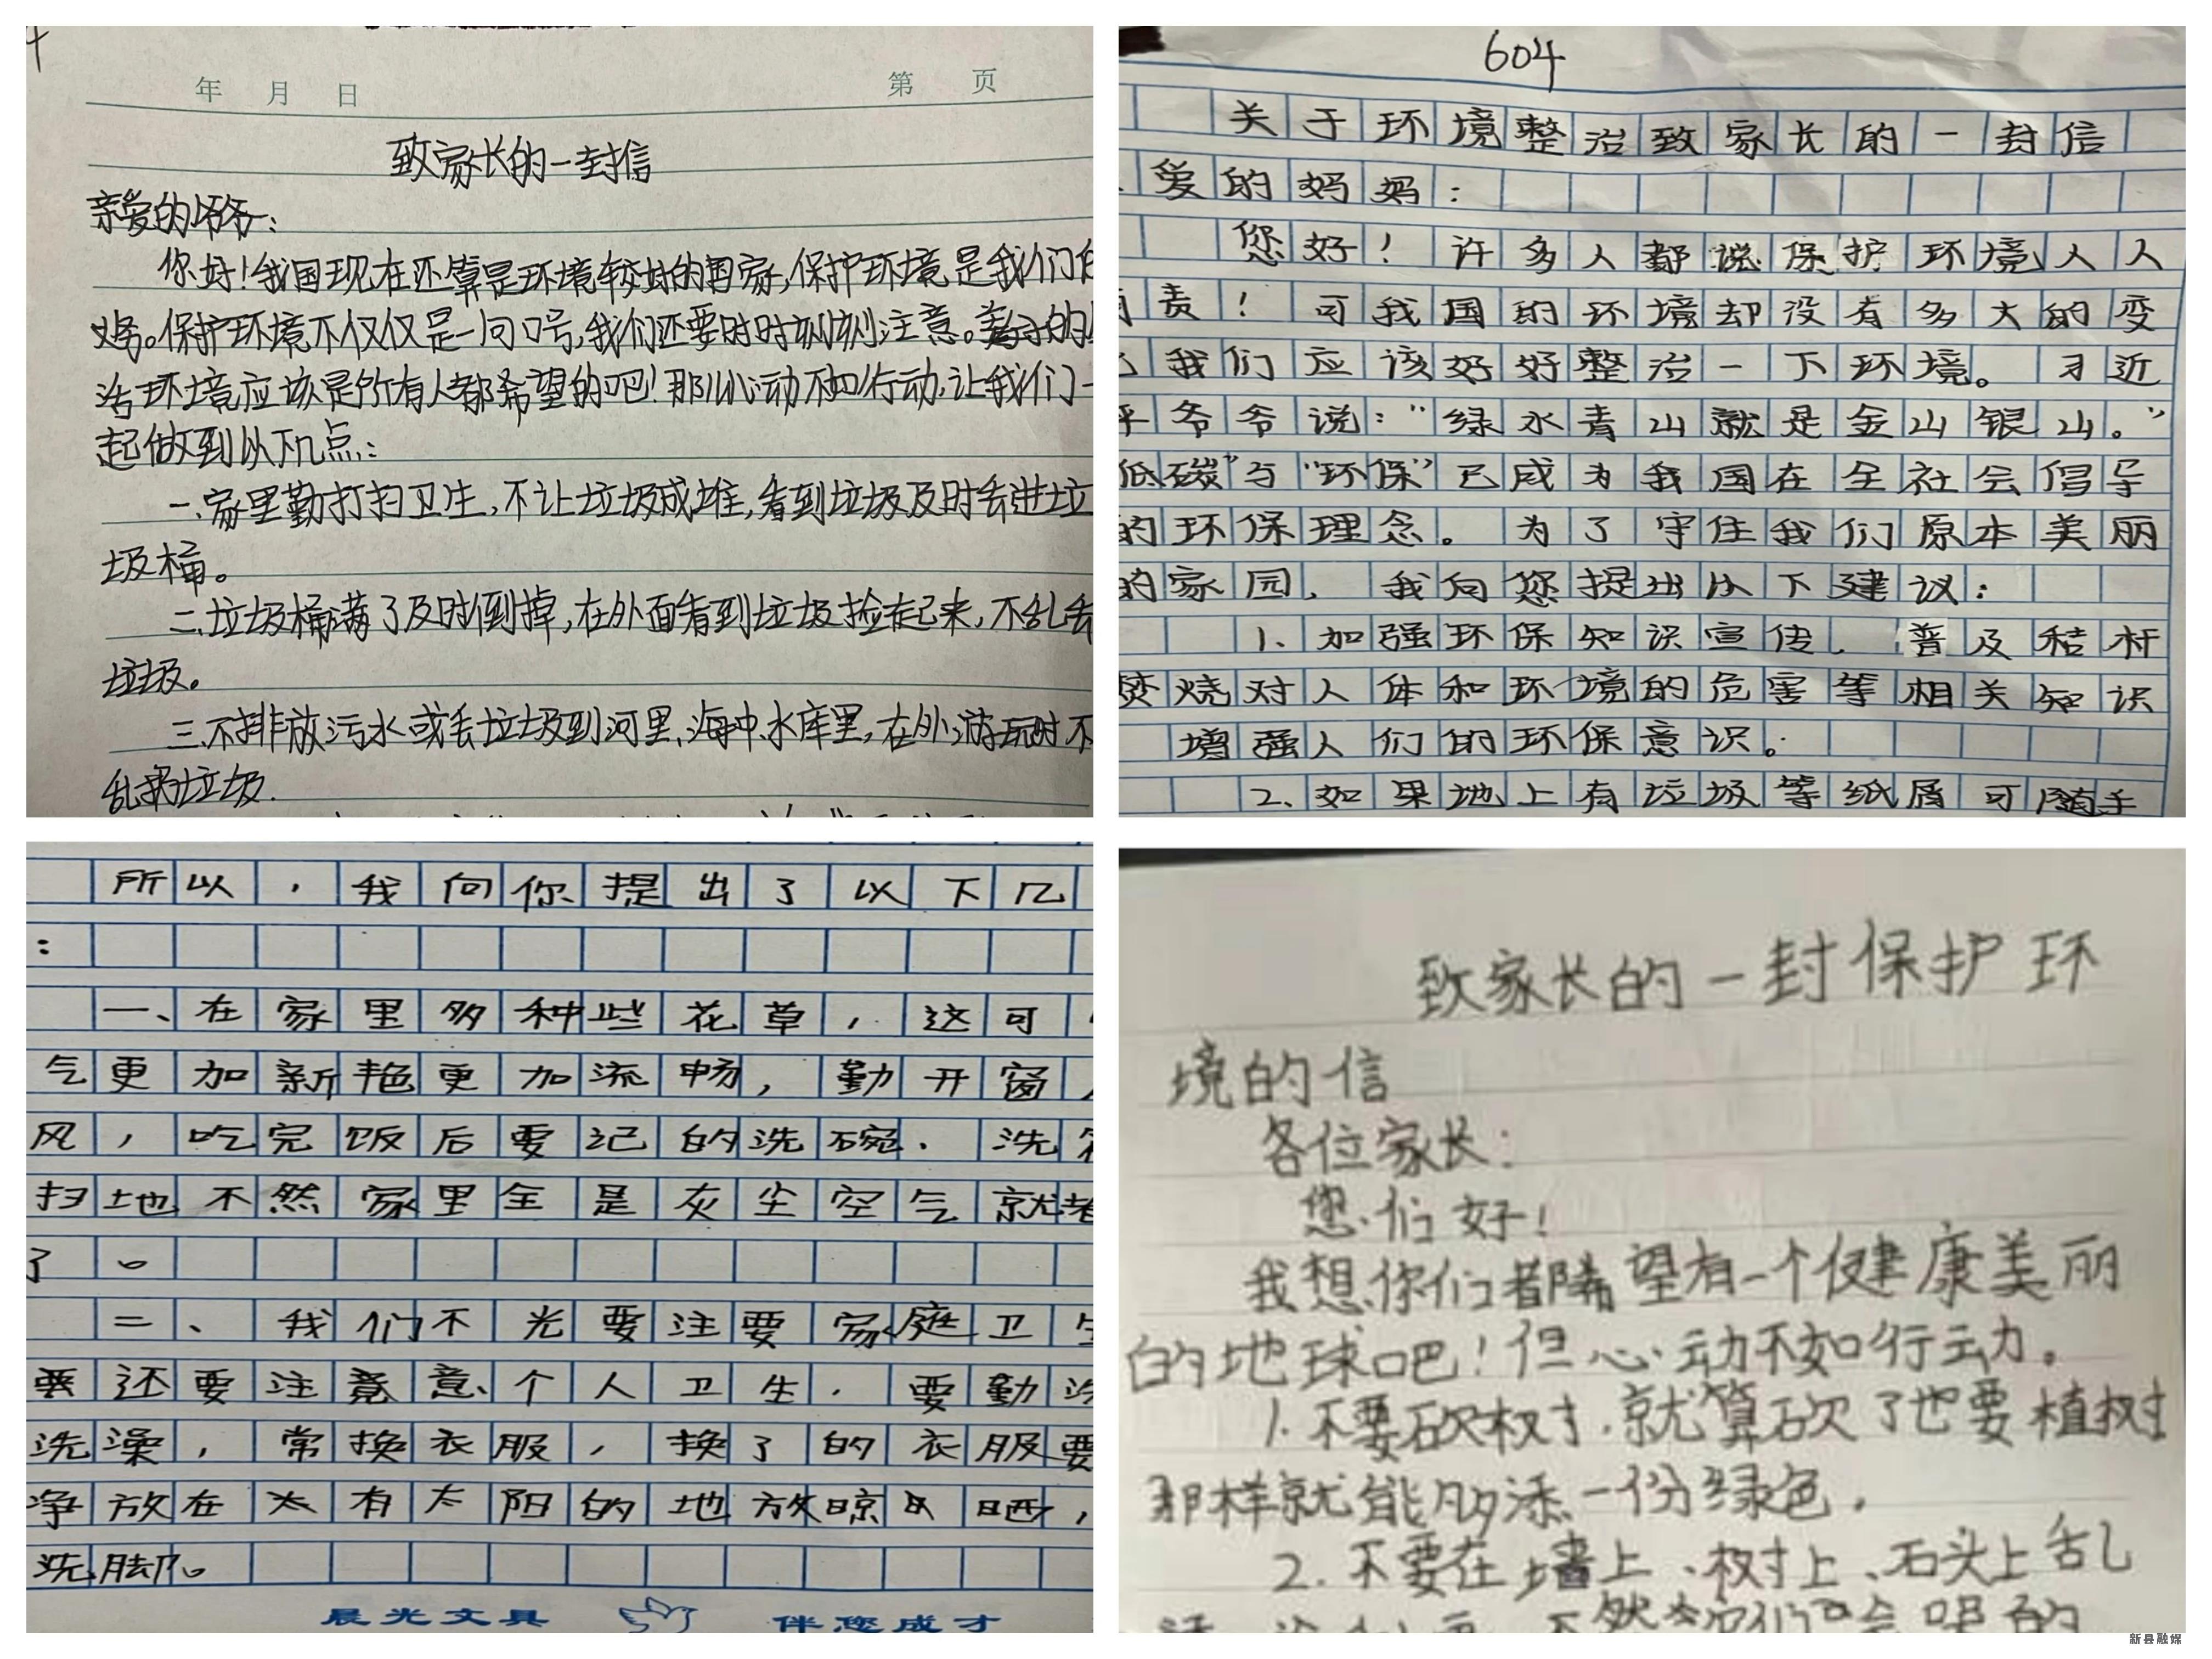 年 月 日 第 页
致家长的一封信
亲爱的爷爷:
你好!我国现在还算是环境较好的国家,保护环境是我们的
义务。保护环境不仅仅是一句口号,我们还要时时刻刻注意。美好的
活环境应该是所有人都希望的吧!那心动不如行动,让我们一
起做到以下几点:
一、家里勤打扫卫生,不让垃圾成堆,看到垃圾及时丢进垃
圾桶。
二、垃圾桶满了及时倒掉,在外面看到垃圾捡起来,不乱丢
垃圾。
三、不排放污水或丢垃圾到河里、海中、水库里,在外游玩时不
乱丢垃圾.
604
关于环境整治致家长的一封信
爱的妈妈:
您好!许多人都说保护环境人人
有责!可我国的环境却没有多大的变
我们应该好好整治一下环境。习近
平爷爷说:“绿水青山就是金山银山。”
低碳”与“环保”已成为我国在全社会倡导
的环保理念。为了守住我们原本美丽
的家园,我向您提出以下建议:
1、加强环保知识宣传,普及秸杆
焚烧对人体和环境的危害等相关知识
增强人们的环保意识。
2、如果地上有垃圾等纸屑可随手
所以,我向你提出了以下几
:
一、在家里多种些花草,这可
气更加新艳更加流畅,勤开窗
风,吃完饭后要记的洗碗.洗
扫地不然家里全是灰尘空气就
了。
二、我们不光要注要家庭卫生
还要注意个人卫生.要勤洗
洗澡,常换衣服,换了的衣服要
净放在有太阳的地放晾晒,
洗脚。
晨光文具 伴您成才
致家长的一封保护环
境的信
各位家长:
您们好!
我想你们都希望有一个健康美丽
的地球吧!但心动不如行动。
1.不要砍树,就算砍了也要植树
那样就能够添一份绿色,
2.不要在墙上、树上、石头上乱
新县融媒